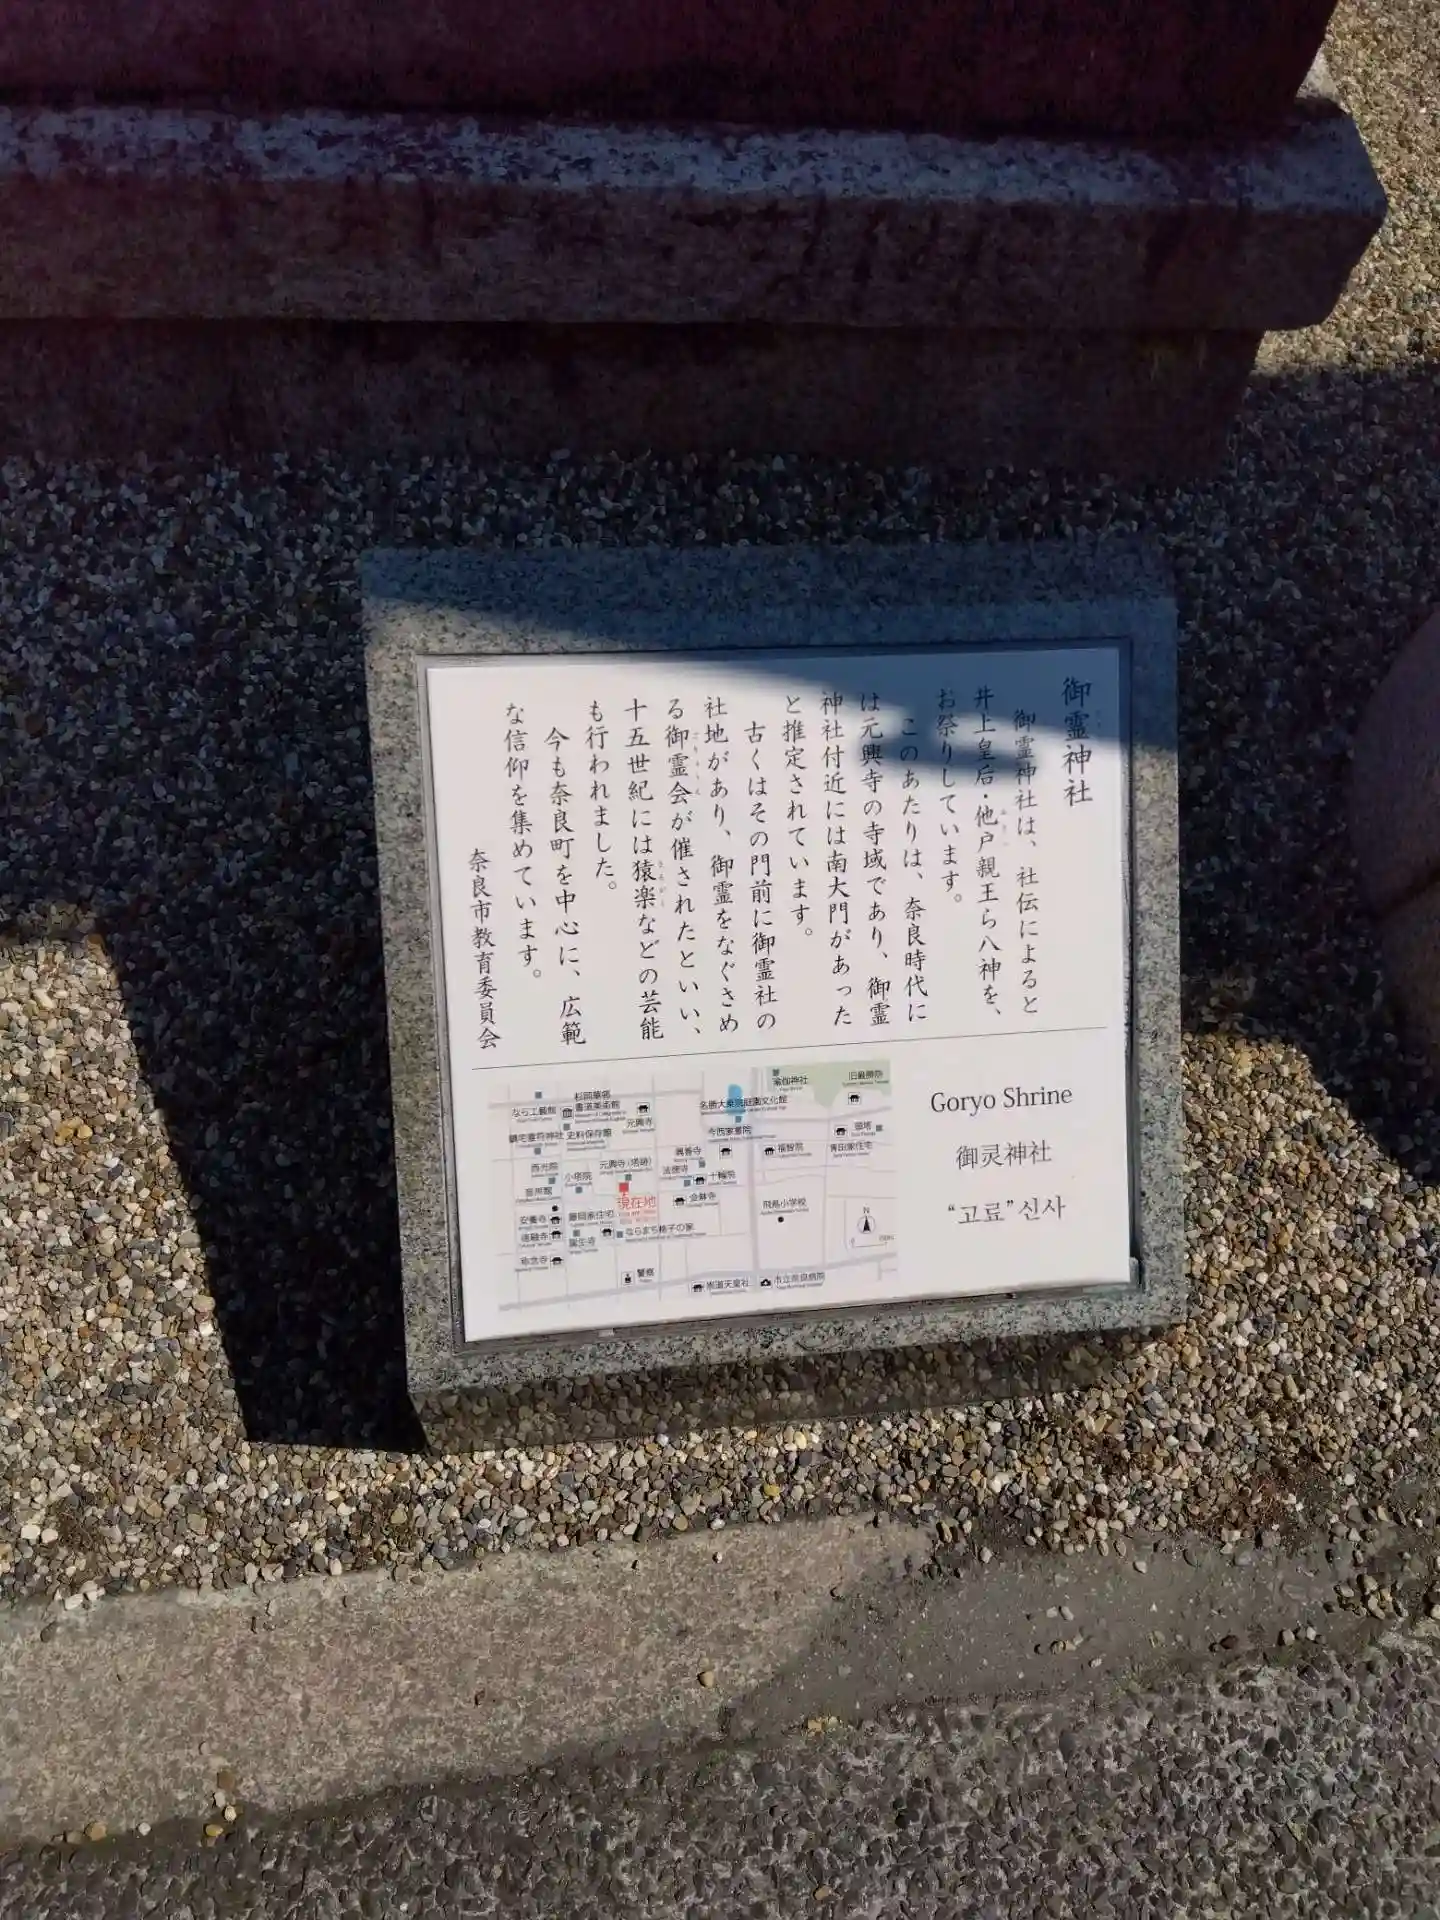 御霊神社
御霊神社は、社伝によると
井上皇后・他戸親王ら八神を、
お祭りしています。
このあたりは、奈良時代に
は元興寺の寺域であり、御霊
神社付近には南大門があった
と推定されています。
古くはその門前に御霊社の
社地があり、御霊をなぐさめ
る御霊会が催されたといい、
十五世紀には猿楽などの芸能
も行われました。
今も奈良町を中心に、広範
な信仰を集めています。
奈良市教育委員会
Goryo Shrine
御灵神社
“고료”신사
瑜伽神社
旧最勝院
杉岡華邨
書道美術館
なら工藝館
元興寺
名勝大乗院庭園文化館
今西家書院
頭塔
鎮宅霊符神社
史料保存館
福智院
青田家住宅
西光院
小塔院
元興寺(塔跡)
興善寺
法徳寺
十輪院
音声館
現在地
金躰寺
飛鳥小学校
安養寺
藤岡家住宅
徳融寺
誕生寺
ならまち格子の家
称念寺
警察
崇道天皇社
市立奈良病院
N
0